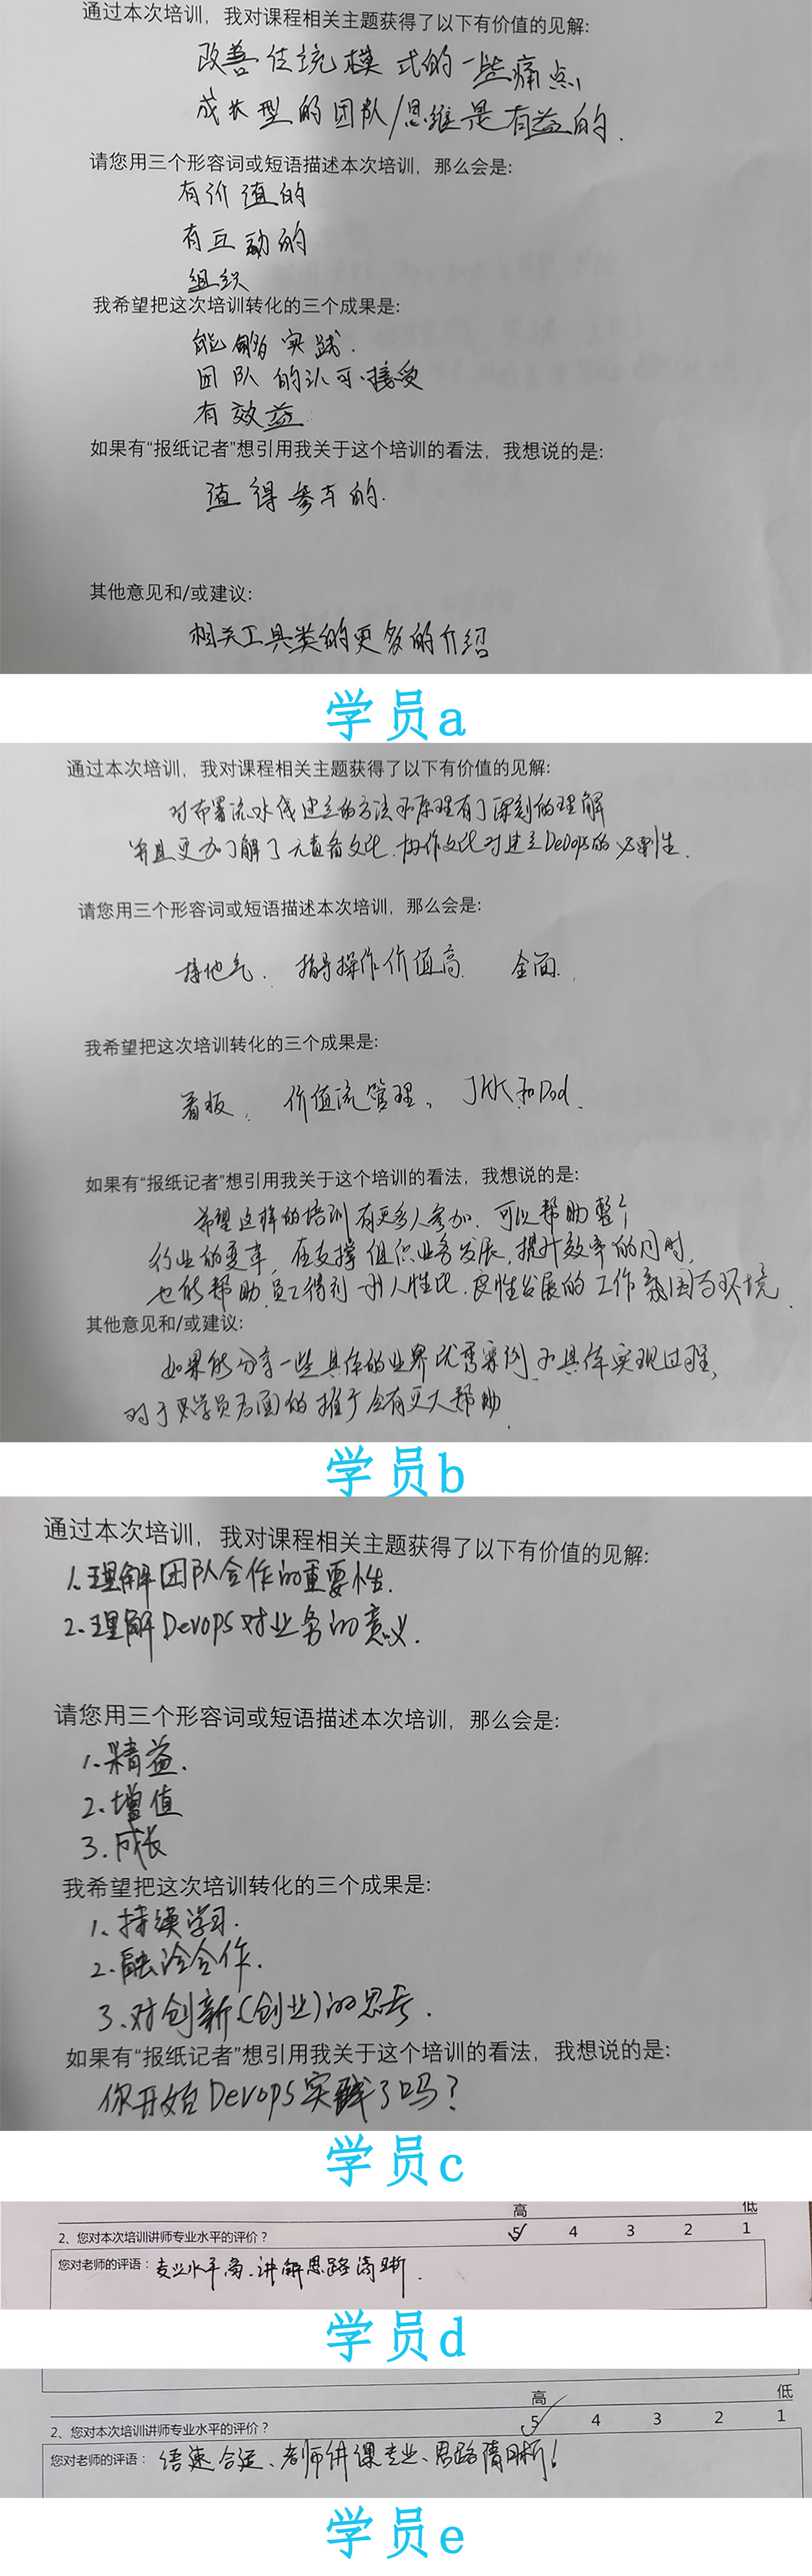 通过本次培训，我对课程相关主题获得了以下有价值的见解:
改善传统模式的一些痛点,
成长型的团队/思维是有益的.
请您用三个形容词或短语描述本次培训，那么会是:
有价值的
有互动的
组织
我希望把这次培训转化的三个成果是:
能够实践.
团队的认可、接受
有效益
如果有“报纸记者”想引用我关于这个培训的看法，我想说的是:
值得参与的.
其他意见和/或建议:
相关工具类的更多的介绍
学员a
通过本次培训，我对课程相关主题获得了以下有价值的见解:
对布署流水线建立的方法和原理有了深刻的理解
并且更加了解了无责备文化.协作文化对建立DevOps的必要性.
请您用三个形容词或短语描述本次培训，那么会是:
接地气. 指导操作价值高 全面.
我希望把这次培训转化的三个成果是:
看板、价值流管理、JKK和Dod.
如果有“报纸记者”想引用我关于这个培训的看法，我想说的是:
希望这样的培训有更多人参加.可以帮助整个
行业的变革,在支撑组织业务发展,提升效率的同时,
也能帮助员工得到人性化.良性发展的工作氛围与环境.
其他意见和/或建议:
如果能分享一些具体的业界优秀案例和具体实现过程,
对于学员后面的推广会有更大帮助.
学员b
通过本次培训，我对课程相关主题获得了以下有价值的见解:
1.理解团队合作的重要性.
2.理解Devops对业务的意义.
请您用三个形容词或短语描述本次培训，那么会是:
1.精益.
2.增值
3.成长
我希望把这次培训转化的三个成果是:
1.持续学习.
2.融洽合作.
3.对创新(创业)的思考.
如果有“报纸记者”想引用我关于这个培训的看法，我想说的是:
你开始Devops实践了吗?
学员c
高 低
2、您对本次培训讲师专业水平的评价？ 5 4 3 2 1
您对老师的评语：专业水平高.讲解思路清晰.
学员d
高 低
2、您对本次培训讲师专业水平的评价？ 5 4 3 2 1
您对老师的评语：语速合适、老师讲课专业、思路清晰!
学员e